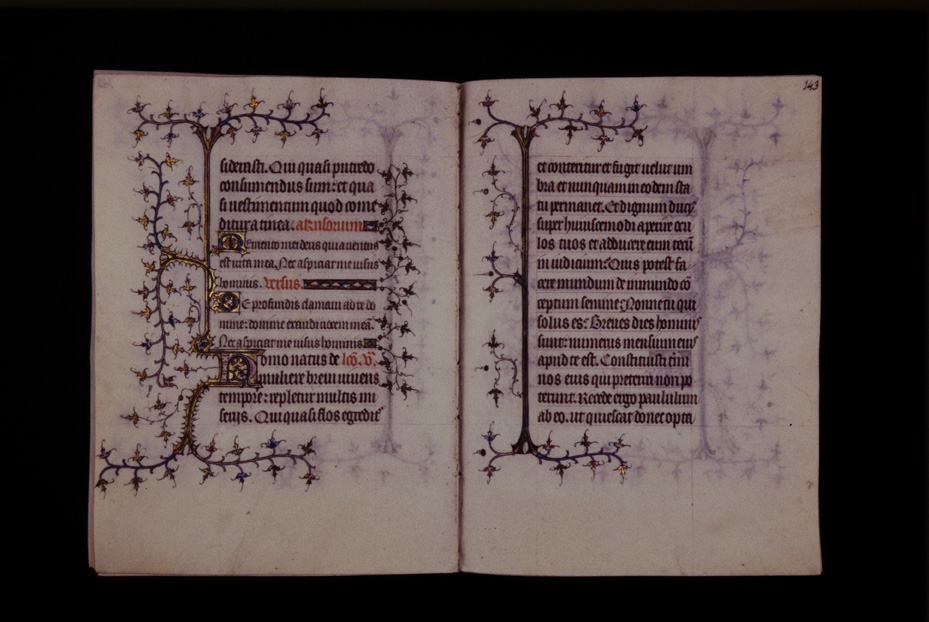 siderasti. Qui quasi putredo
consumendus sum: et qua
si vestimentum quod come
ditur a tinea. responsorium
Memento mei deus quia ventus
est vita mea. Nec aspiciat me visus
hominis. versus.
De profundis clamavi ad te do
mine: domine exaudi vocem meā.
Nec aspiciat me visus hominis
Homo natus de lcō. v̄.
muliere brevi vivens
tempore: repletur multis mi
seriis. Qui quasi flos egredit᷑
143
et conteritur et fugit velut um
bra et nunquam in eodem sta
tu permanet. Et dignum ducis
super huiuscemodi aperire ocu
los tuos et adducere eum tecū
in iudicium: Quis potest fa
cere mundum de immundo cō
ceptum semine: Nonne tu qui
solus es: Breves dies hominis
sunt: numerus mensium eius
apud te est. Constituisti t͞mi
nos eius qui preteriri non po
terunt. Recede ergo paululum
ab eo. ut quiescat donec opta